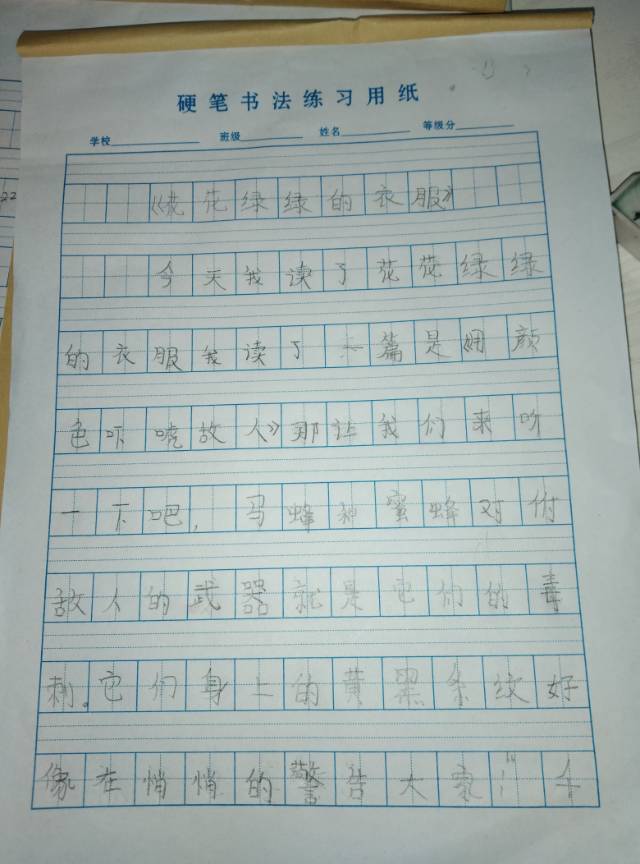 硬笔书法练习用纸
学校 班级 姓名 等级分
花绿绿的衣服》
今天我读了花花绿绿
的衣服我读了一篇是用颜
色吓唬故人》那让我们来听
一下吧,马蜂和蜜蜂对付
敌人的武器就是它们的毒
刺。它们身上的黄黑条纹好
像在悄悄的警告大家:“千
22